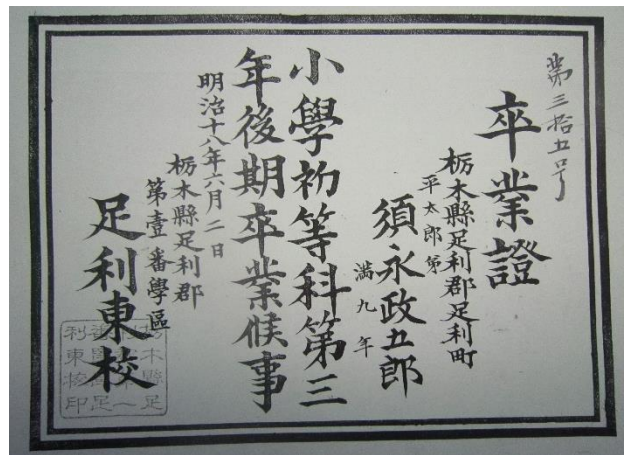 第三拾五号
卒業證
栃木縣足利郡足利町
平太郎弟
須永政五郎
満九年
小學初等科第三
年後期卒業候事
明治十八年六月二日
栃木縣足利郡
第壹番學區
足利東校